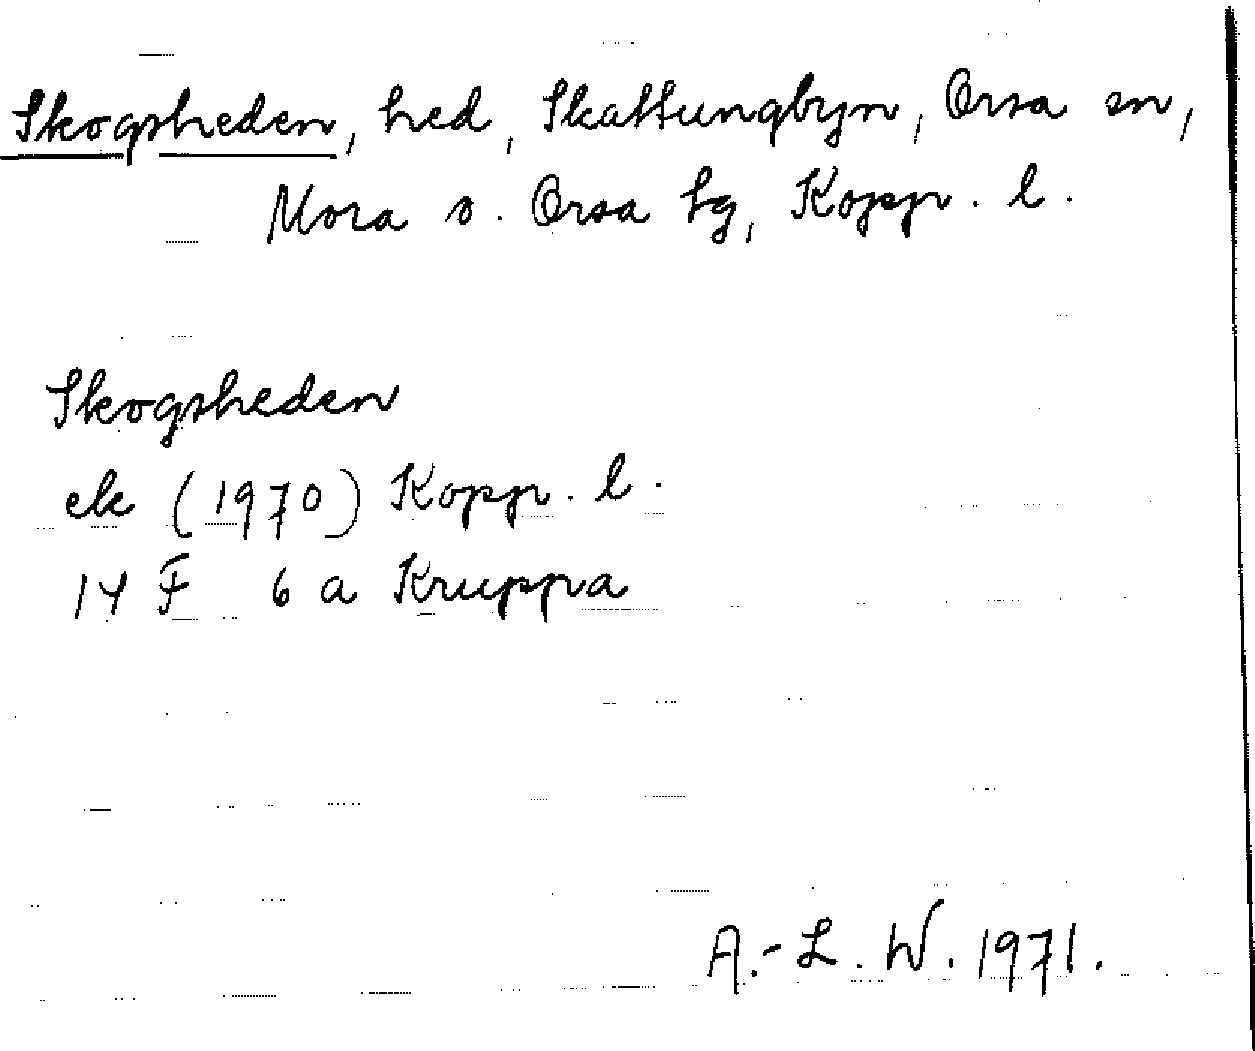 Skogsheden, hed, Skattungbyn, Orsa sn,
Mora o. Orsa tg, Kopp. l.
Skogsheden
ek (1970) Kopp. l.
14 F 6 a Kruppa
A.-L. W. 1971.